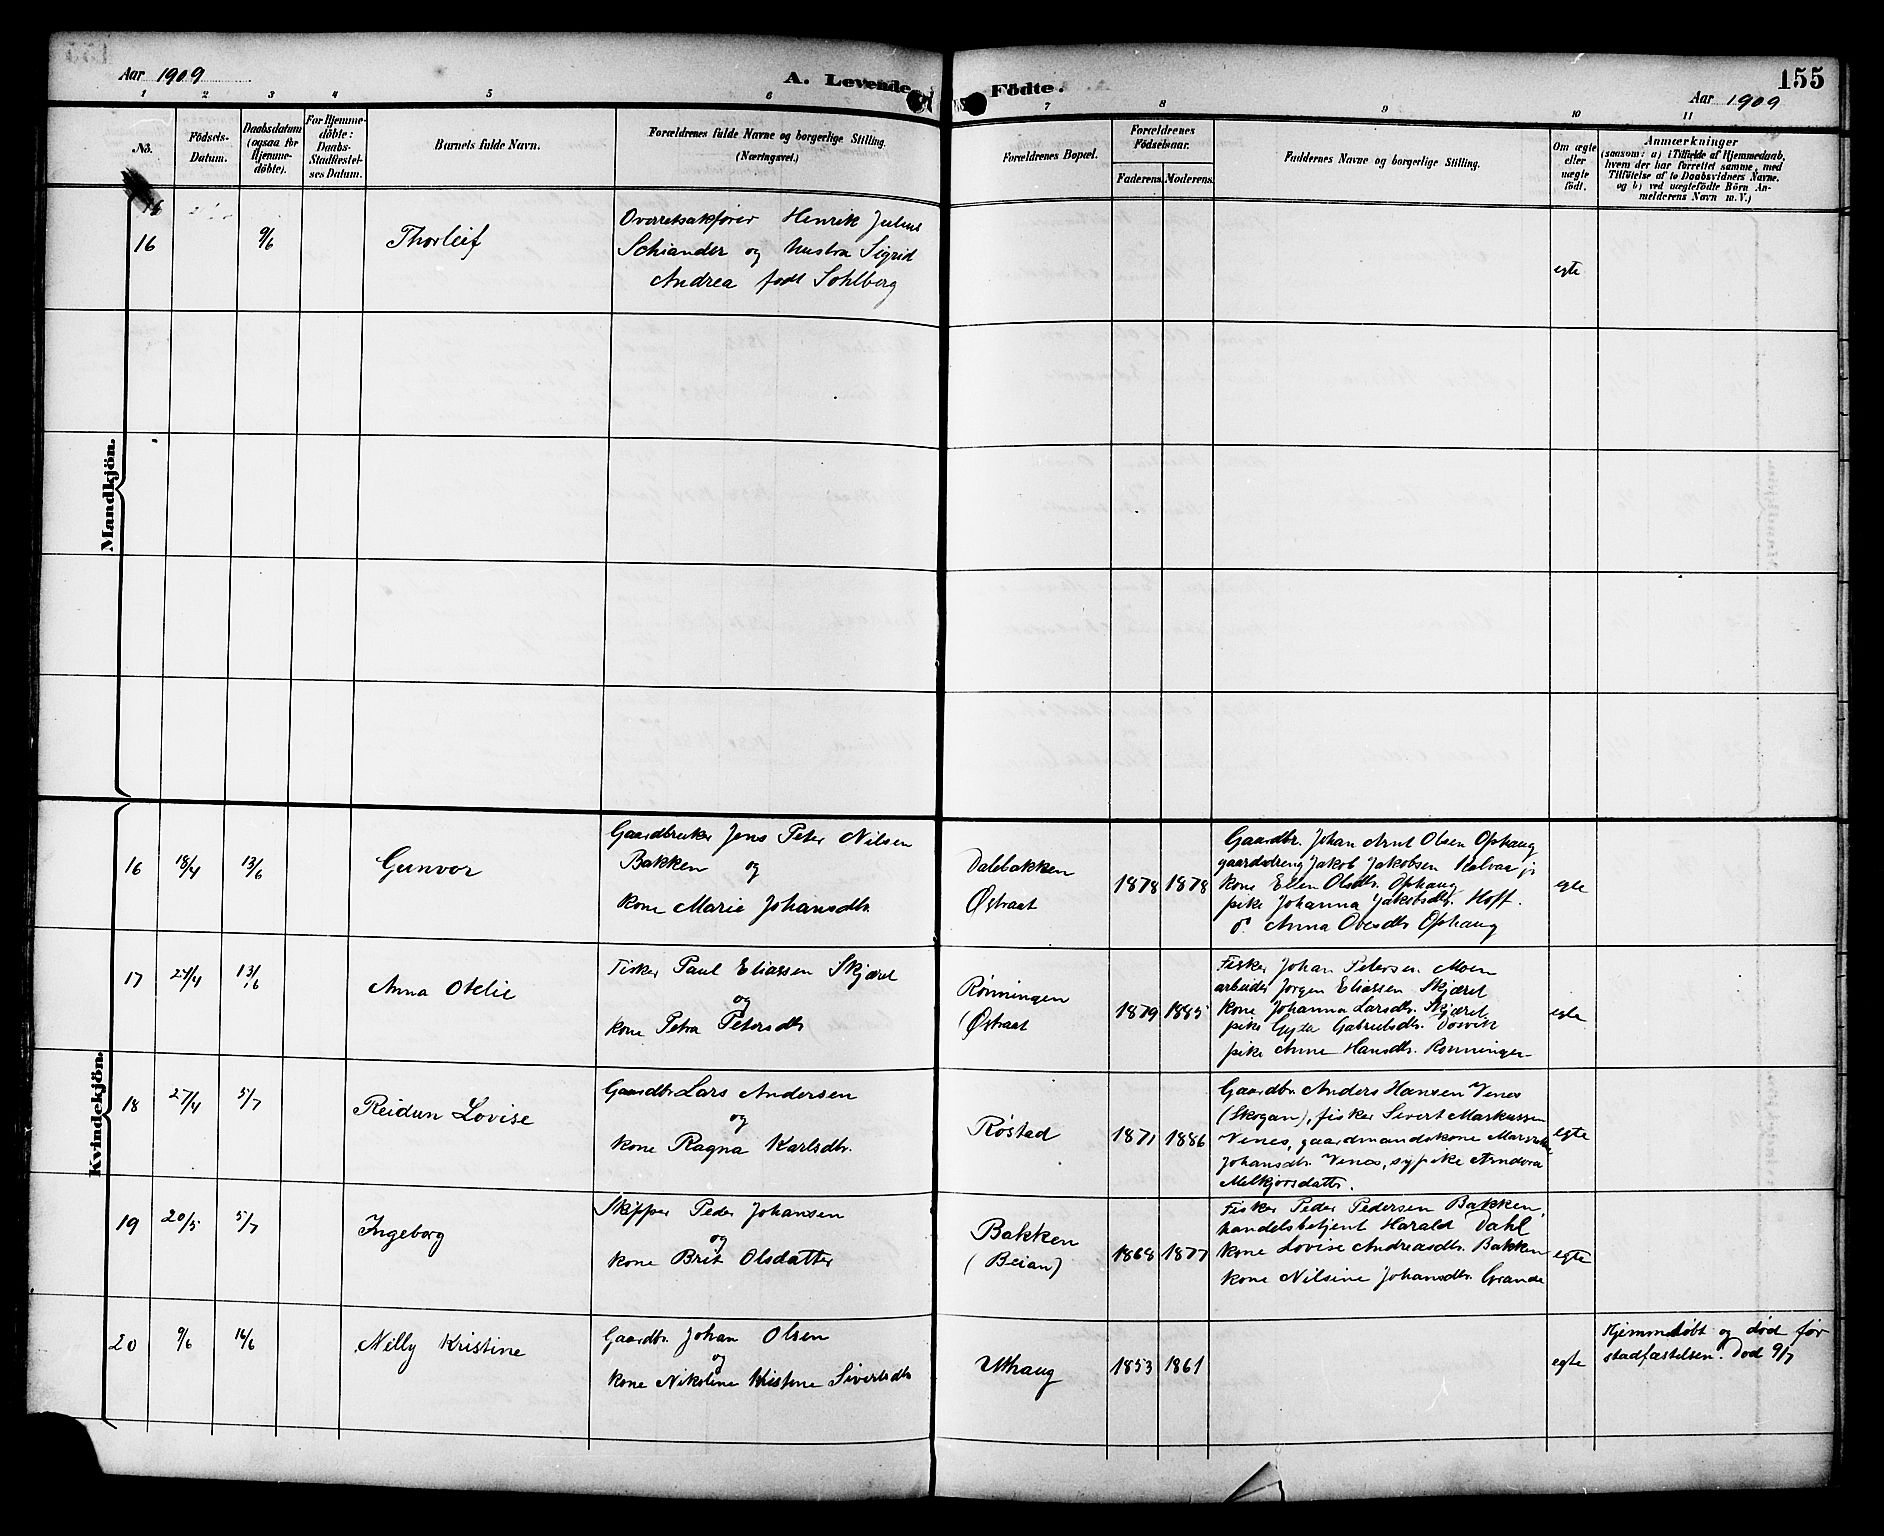 155
Aar 1909
A. Levende Födte.
Aar 1909
1 2 3 4 5 6 7 8 9 10 11
No.
Födsels-Datum.
Daabsdatum (ogsaa for Hjemmedöbte).
For Hjemmedöbte: Daabs-Stadfæstelses Datum.
Barnets fulde Navn.
Forældrenes fulde Navne og borgerlige Stilling.
(Næringsvei.)
Forældrenes Bopæl.
Forældrenes Födselsaar.
Faderens. Moderens.
Faddernes Navne og borgerlige Stilling.
Om ægte eller uægte födt.
Anmærkninger
(saasom: a) i Tilfælde af Hjemmedaab,
hvem der har forrettet samme, med
Tilföielse af to Daabsvidners Navne.
og b) ved uægtefödte Börn An-
melderens Navn m. V.)
Mandkjön.
16 9/6 Thorleif
Overretsakfører Henrik Julius
Schiander og hustru Sigrid
Andrea født Sohlberg
egte
Kvindekjön.
16 18/4 13/6 Gunvor
Gaardbruker Jens Peter Nilsen
Bakken og
kone Marie Johansdtr.
Dalebakken
Østraat
1878 1878
Gaardbr. Johan Arnt Olsen Ophaug
gaardsdreng Jakob Jakobsen
kone Ellen Olsdtr. Ophaug
pike Johanna Jakobsdtr. Hoff.
Anna Olesdtr Ophaug
egte
17 24/4 13/6 Anna Otelie
Fisker Paul Eliassen Skjæret
og
kone Petra Petersdtr
Rønningen
(Østraat
1879 1885
Fisker Johan Petersen Moen
arbeider Jørgen Eliassen Skjæret
kone Johanna Larsdtr. Skjæret
pike Gyda Gabrielsdtr.
pike Anne Hansdtr. Rønningen
egte
18 27/4 5/7 Reidun Lovise
Gaardbr. Lars Andersen
og
kone Ragna Karlsdtr.
Røstad
1871 1886
Gaardbr. Anders Hansen Venes
(Skogan), fisker Sivert Markussen
Venes, gaardmandskone
Johansdtr. Venes, sypike Arndora
Melkjorsdatter.
egte
19 20/5 5/7 Ingeborg
Skipper Peder Johansen
og
kone Brit Olsdatter
Bakken
(Beian)
1868 1877
Fisker Peder Pedersen Bakken,
handelsbetjent Harald Dahl
kone Lovise Andreasdtr. Bakken
kone Nilsine Johansdtr. Grande
egte
20 9/6 16/6 Nelly Kristine
Gaardbr. Johan Olsen
og
kone Nikoline Kristine Sivertsdtr
Uthaug
1853 1861
egte
Hjemmedøbt og død før
stadfæstelsen. Død 9/7